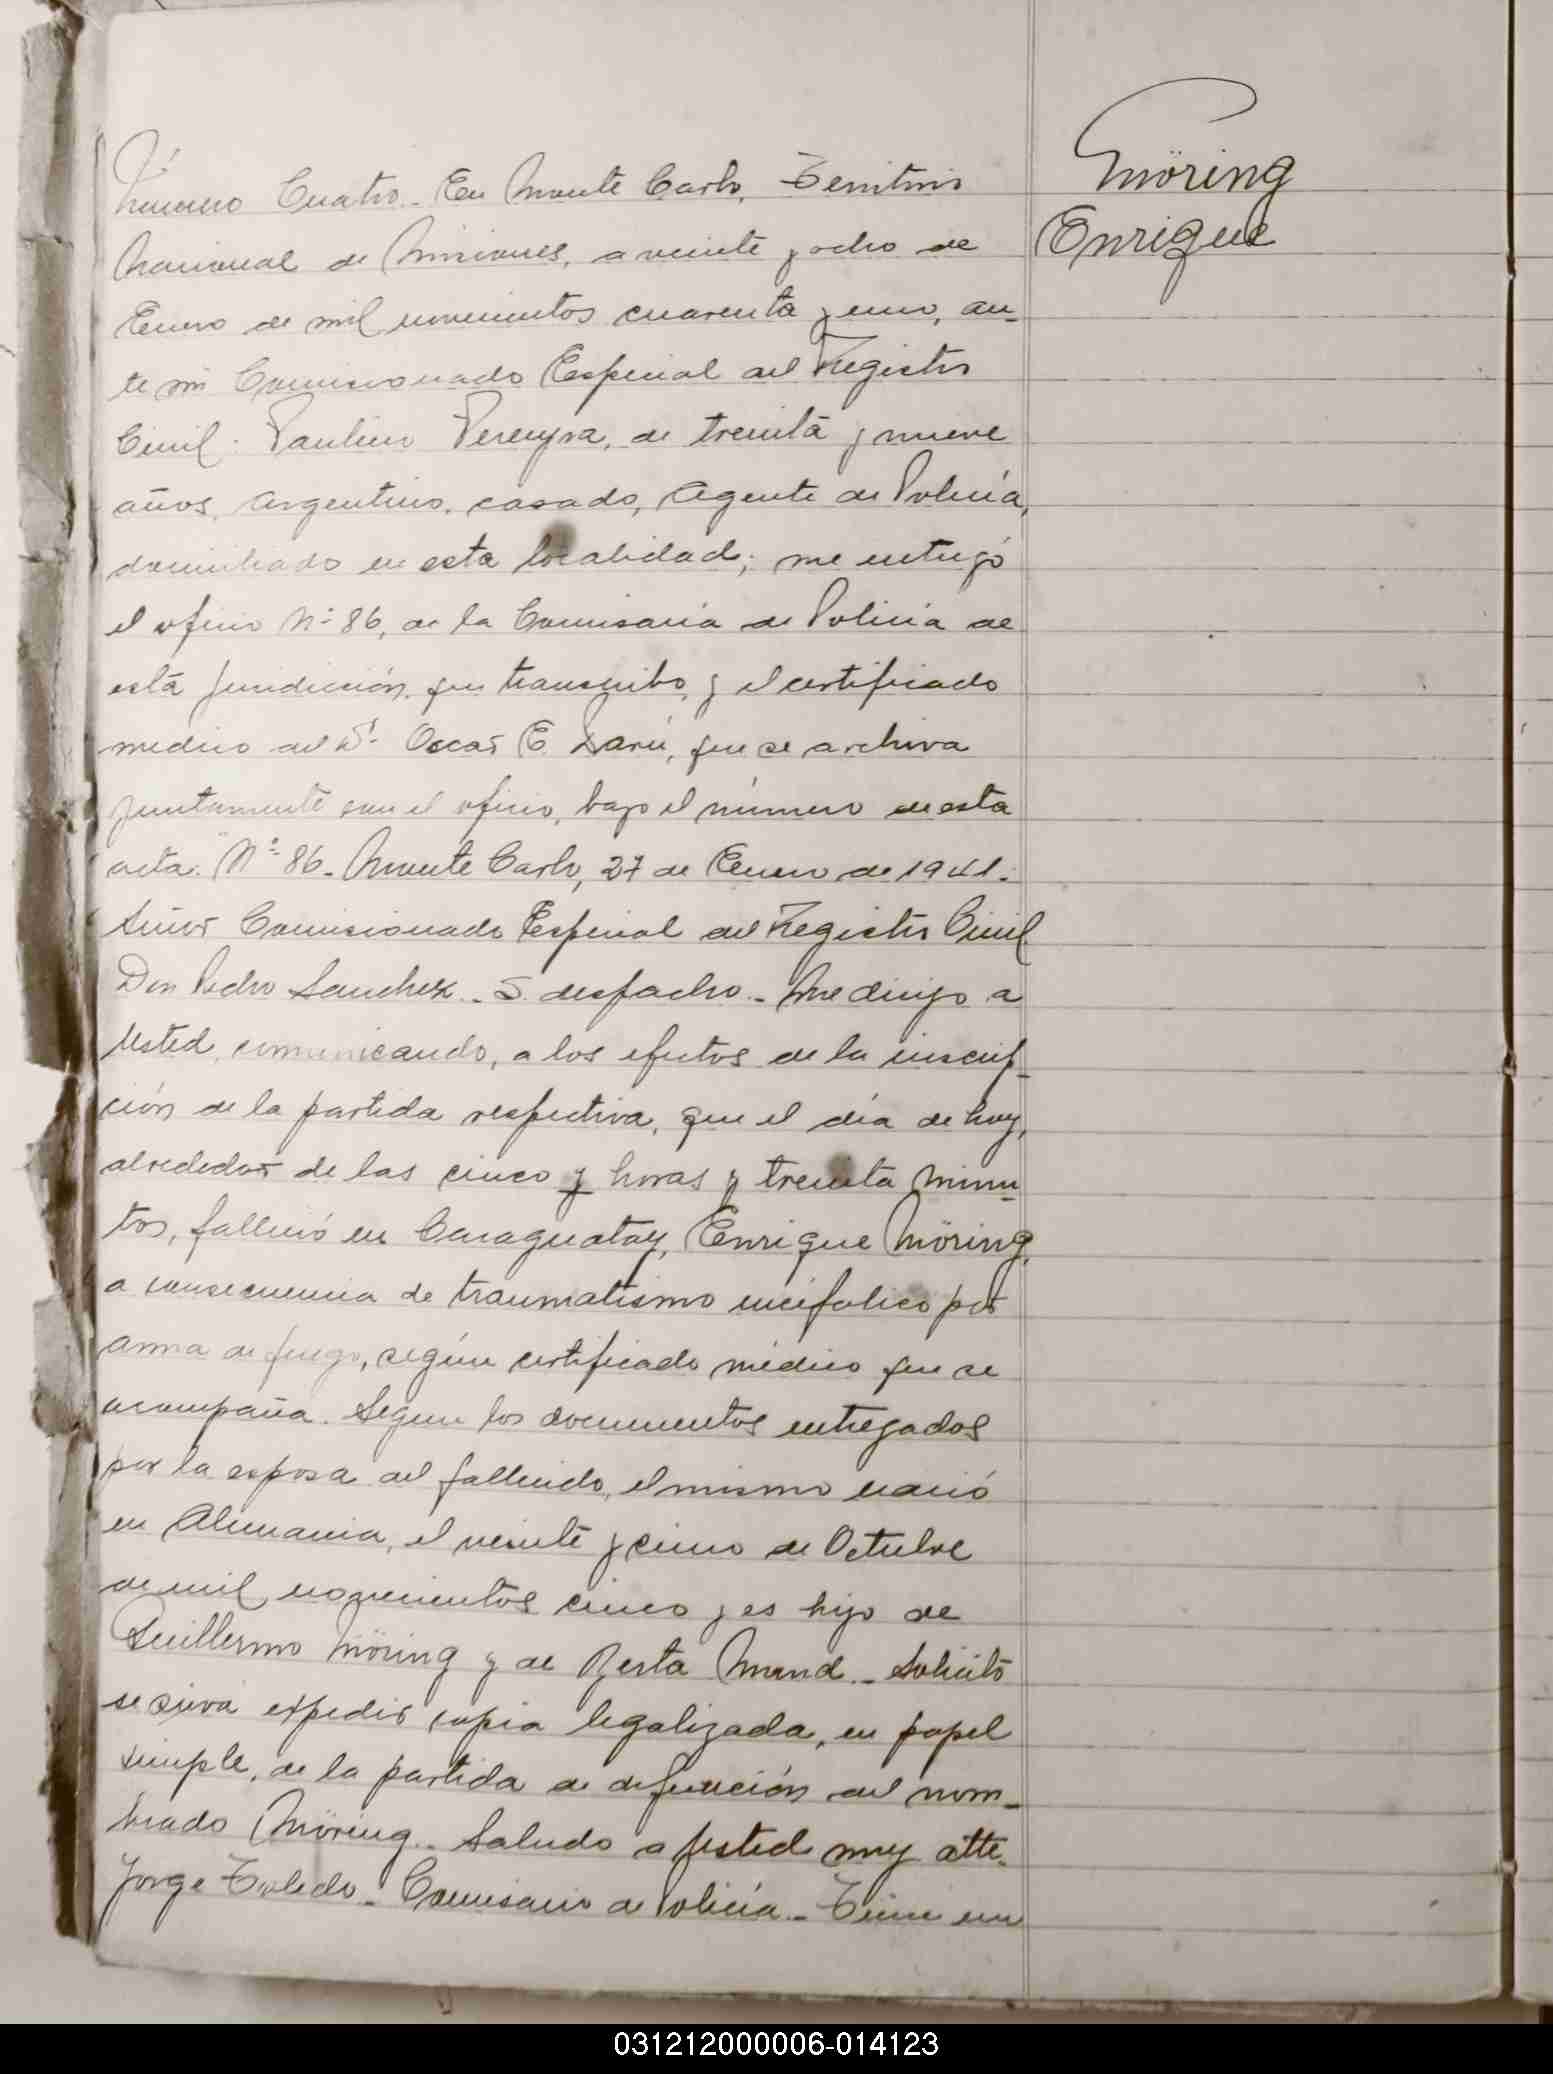 Möring
Enrique
Número Cuatro.- En Monte Carlo, Territorio
Nacional de Misiones, a veinte y ocho de
Enero de mil novecientos cuarenta y uno, an-
te mi Comisionado Especial del Registro
Civil: Paulino Pereyra, de treinta y nueve
años, argentino, casado, Agente de Policía,
domiciliado en esta localidad; me entregó
el oficio Nº 86, de la Comisaría de Policía de
está juridicción, que transcribo, y el certificado
medico del Dr. Oscar E. Darú, que se archiva
juntamente con el oficio, bajo el número de esta
acta: "Nº 86.- Monte Carlo, 27 de Enero de 1941.-
Señor Comisionado Especial del Registro Civil
Don Pedro Sanchez.- S. despacho.- Me dirijo a
Usted, comunicando, a los efectos de la inscrip-
ción de la partida respectiva, que el día de hoy,
alrededor de las cinco y horas y treinta minu-
tos, falleció en Caraguatay, Enrique Möring,
a consecuencia de traumatismo encéfalico por
arma de fuego, según certificado médico que se
acompaña. Segun los documentos entregados
por la esposa del fallecido, el mismo nació
en Alemania, el veinte y cinco de Octubre
de mil novecientos cinco y es hijo de
Guillermo Möring y de Berta Mund.- Solicito
se sirva expedir copia legalizada, en papel
simple, de la partida de defunción del nom-
brado Möring.- Saludo a Usted muy atte.
Jorge Toledo.- Comisario de Policía.- Tiene un
031212000006-014123